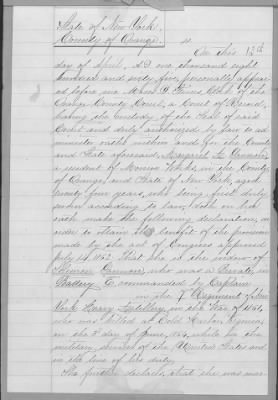 State of New York
County of Orange
On this 13th
day of April, A.D. one thousand eight
hundred and sixty five, personally appear
ed before me Clerk of the
Orange County Court, a Court of Record,
having the custody of the Seal of said
Court and duly authorized by law to ad
minister oath within and for the County
and State aforesaid, Margaret
a resident of Monroe Works, in the County
of Orange, and State of New York, aged
twenty four years, who being first duly
sworn according to law, doth on her
oath make the following declaration, in
order to obtain the benefit of the provision
made by the act of Congress approved
July 14 1862 That she is the widow of
who was a Private, in
Battery commanded by Captain
in the 7 Regiment of New
York Heavy Artillery, in the War of 1861,
who was killed at Cold Harbor,
on the 3d day of June, while in the
military service of the United States and
in the line of his duty.
She further declares, that she was mar-